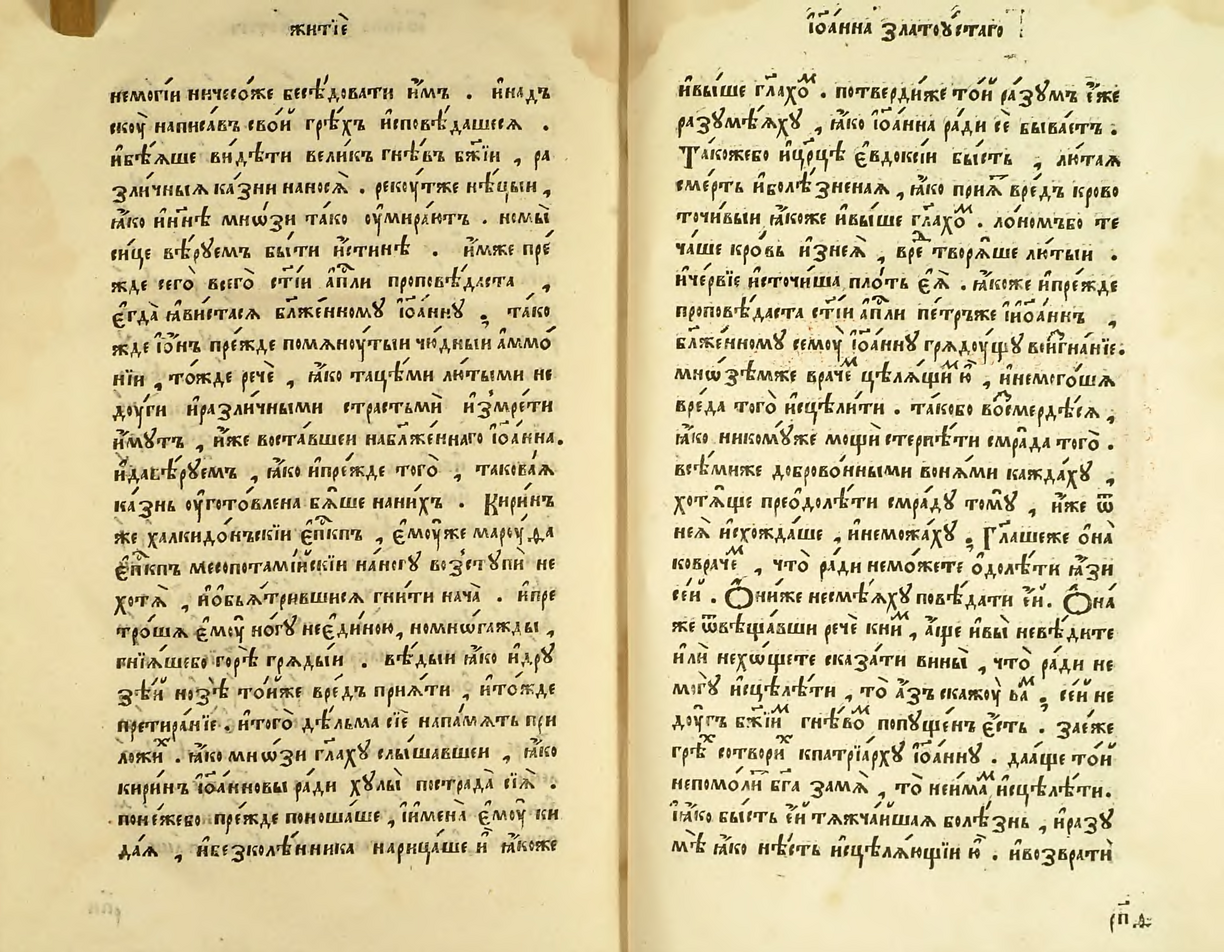 житїѐ
немогі́и ничесо́же бесѣ́довати и҆́мъ . и҆надъ
скоу̀ написа́въ сво́й грѣ́хъ и҆сповѣ́дашеся .
и҆бѣ́яше ви́дѣти вели́къ гнѣ́въ бж҃їи , ра
зли́чныѧ ка́зни наносѧ̀ . реко́утже нѣ́цыи ,
ꙗ҆́ко и҆нн҃ѣ мнѡ́зи та́ко оу҆мира́ютъ . немы̀
си́це вѣ́руемъ бы́ти и҆́стинѣ . и҆́мже пре́
жде сего̀ всего̀ ст҃і́и а҆пⷭ҇ли проповѣ́даста ,
є҆гда̀ ꙗ҆ви́стасѧ бл҃же́нному і҆ѡа́нну . та́ко
жде і҆ѡ҃нъ пре́жде помѧноу́тыи чю́дныи а҆ммо́
нїи , то́жде речѐ , ꙗ҆́ко тацѣ́ми лю́тыми не
доу́ги и҆разли́чными страстьмѝ и҆́змрети
и҆́мутъ , и҆́же воста́вшеи наблаже́ннаго і҆ѡ҃а́нна .
и҆давѣ́руемъ , ꙗ҆́ко и҆пре́жде того̀ , такова́ѧ
ка́знь оу҆гото́влена бѧ́ше нани́хъ . Кири́нъ
же халкидо́нъскїи є҆пⷭ҇кпъ , є҆моу́же мароу́фа
є҆пⷭ҇кпъ месопотамі́йскїи на́ногу возⸯступѝ не
хотѧ̀ , и҆обьѧ́трившисѧ гни́ти нача̀ . и҆пре
тро́шѧ є҆моу̀ но́гу неє҆ди́ною , номнѡ́гажды ,
гнїѧ́шебо го́рѣ грѧды́и . вѣ́дыи ꙗ҆́ко и҆дру
зѣ́й но́зѣ то́йже вре́дъ прїѧ́ти , и҆то́жде
претира́нїе . и҆того̀ дѣ́льма сїѐ напа́мѧть при
ложи́ⷯ . ꙗ҆́ко мнѡ́зи гл҃аху слы́шавшеи , ꙗ҆́ко
кири́нъ і҆ѡ҃а́нновы ра́ди хулы̀ пострада̀ сїѧ̀ .
поне́жебо пре́жде поноша́ше , и҆имена̀ є҆моу̀ ки
да́ѧ , и҆безколѣ́нника нарица́ше и҆̀ ꙗ҆́коже
і҆ѡ҃а́нна златоу́стаго
и҆вы́ше гл҃ахоⷨ . потверди́же то́й ра́зумъ є҆́же
разумѣ́ѧху , ꙗ҆́ко і҆ѡ҃а́нна ра́ди се̏ быва́етъ .
Та́кожебо и҆цр҃цѣ є҆vдоксі́и бы́сть , лю́таѧ
сме́рть и҆болѣ́зненаѧ , ꙗ҆́ко прїѧ́ⷨ вре́дъ крово
точи́выи ꙗ҆́коже и҆вы́ше гл҃ахоⷨ . ло́номъбо те
ча́ше кро́вь и҆знеѧ̀ , вреⷣ творѧ́ше лю́тыи .
и҆че́рвїе и҆сточи́ша пло́ть є҆ѧ̀ . ꙗ҆́коже и҆пре́жде
проповѣ́даста ст҃і́и а҆пⷭ҇ли пе́тръже и҆і҆ѡа́ннъ ,
бл҃же́нному семоу̀ і҆ѡ҃а́нну грѧдоу́щу воизгна́нїе .
мнѡ́зѣмже враче́ⷨ цѣлѧ́щиⷨ ю҆̀ , и҆немого́шѧ
вре́да того̀ и҆сцѣли́ти . та́кобо восмердѣ́сѧ ,
ꙗ҆́ко никому́же мощѝ стерпѣ́ти смра́да того̀ .
всѣ́миже доброво́нными вонѧ́ми кажда́ху ,
хотѧ́ще преѡ҆долѣ́ти смра́ду тому̀ , и҆́же ѿ
неѧ̀ и҆схожда́ше , и҆неможа́ху . Гл҃ашеже ѻ҆на̀
ковраче́ⷨ , что̀ ра́ди немо́жете ѡ҆долѣ́ти ꙗ҆́зи
се́й . Ѻ҆ни́же несмѣ́ѧху повѣ́дати є҆́й . Ѻ҆на́
же ѿвѣща́вши речѐ кни́ⷨ , а҆́ще и҆вы̀ невѣ́дите
и҆лѝ нехѡ́щете сказа́ти вины̀ , что̀ ра́ди не
могу̀ и҆сцѣлѣ́ти , то̀ а҆́зъ скажоу̀ ва́ⷨ . се́й не
доу́гъ бж҃їиⷨ гнѣ́воⷨ попуще́нъ є҆́сть . зае́же
грѣ́ⷯ сотвори́ⷯ кпатрїа́рху і҆ѡ҃а́нну . даа҆́ще то́й
непомо́ли бг҃а замѧ̀ , то̀ неи҆́маⷨ и҆сцѣлѣ́ти .
Ꙗ҆́ко бы́сть є҆́й тѧжча́йшаѧ болѣ́знь , и҆разу
мѣ̀ ꙗ҆́ко нѣ́сть и҆сцѣлѧ́ющїи ю҆̀ . и҆возвратѝ
рп҃д